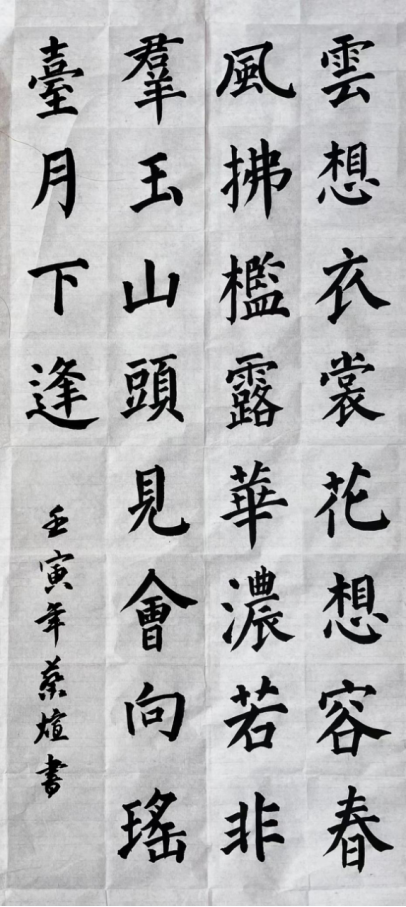 雲想衣裳花想容春
風拂檻露華濃若非
羣玉山頭見會向瑤
臺月下逢
壬寅年蔡煊書